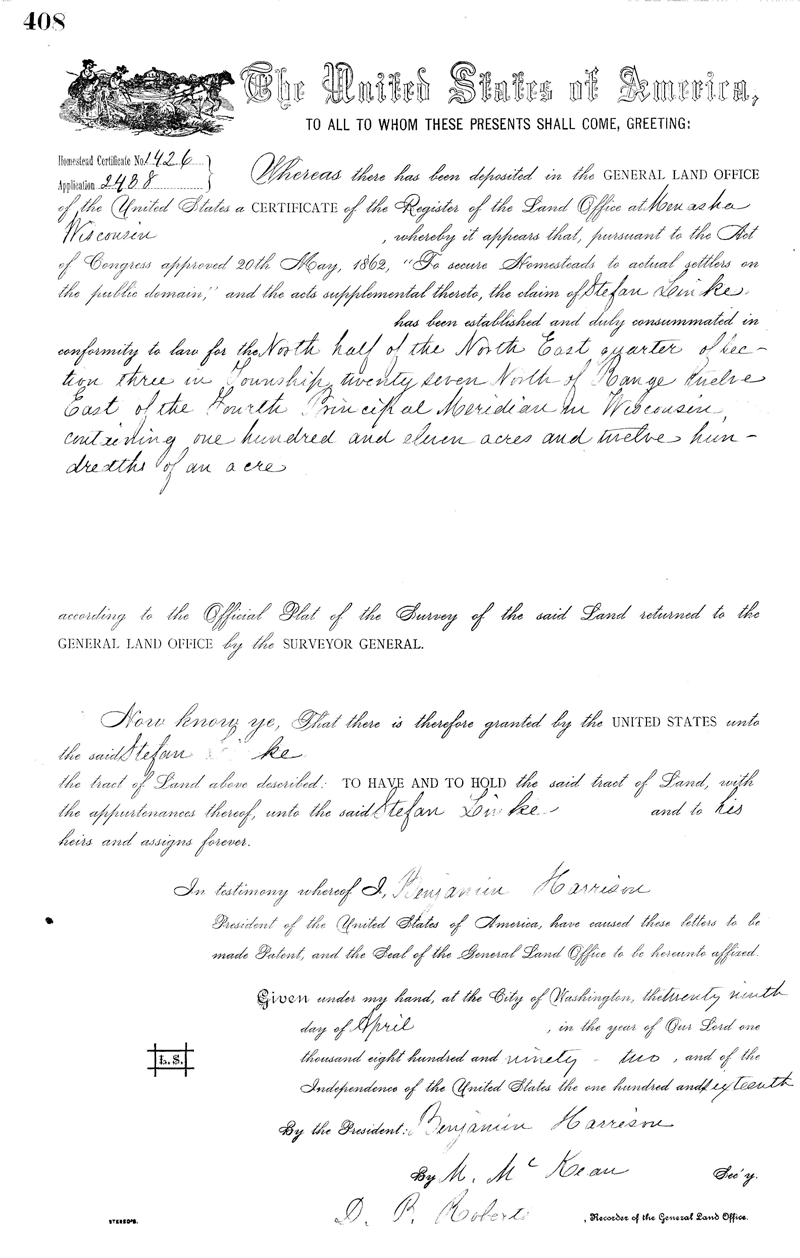 408
The United States of America,
TO ALL TO WHOM THESE PRESENTS SHALL COME, GREETING:
Homestead Certificate No. 1426
Application 2438
Whereas there has been deposited in the GENERAL LAND OFFICE
of the United States a CERTIFICATE of the Register of the Land Office at Menasha
Wisconsin , whereby it appears that, pursuant to the Act
of Congress approved 20th May, 1862, "To secure Homesteads to actual settlers on
the public domain," and the acts supplemental thereto, the claim of Stefan Linke
has been established and duly consummated in
conformity to law for the North half of the North East quarter of Sec-
tion three in Township twenty seven North of Range twelve
East of the Fourth Principal Meridian in Wisconsin,
containing one hundred and eleven acres and twelve hun-
dredths of an acre
according to the Official Plat of the Survey of the said Land returned to the
GENERAL LAND OFFICE by the SURVEYOR GENERAL.
Now know ye, That there is therefore granted by the UNITED STATES unto
the said Stefan Linke
the tract of Land above described: TO HAVE AND TO HOLD the said tract of Land, with
the appurtenances thereof, unto the said Stefan Linke and to his
heirs and assigns forever.
In testimony whereof I, Benjamin Harrison
President of the United States of America, have caused these letters to be
made Patent, and the Seal of the General Land Office to be hereunto affixed.
Given under my hand, at the City of Washington, the twenty ninth
day of April , in the year of Our Lord one
L.S.
thousand eight hundred and ninety - two , and of the
Independence of the United States the one hundred and sixteenth
By the President: Benjamin Harrison
By M. McKean Sec'y.
D. P. Roberts , Recorder of the General Land Office.
STEREO'S.